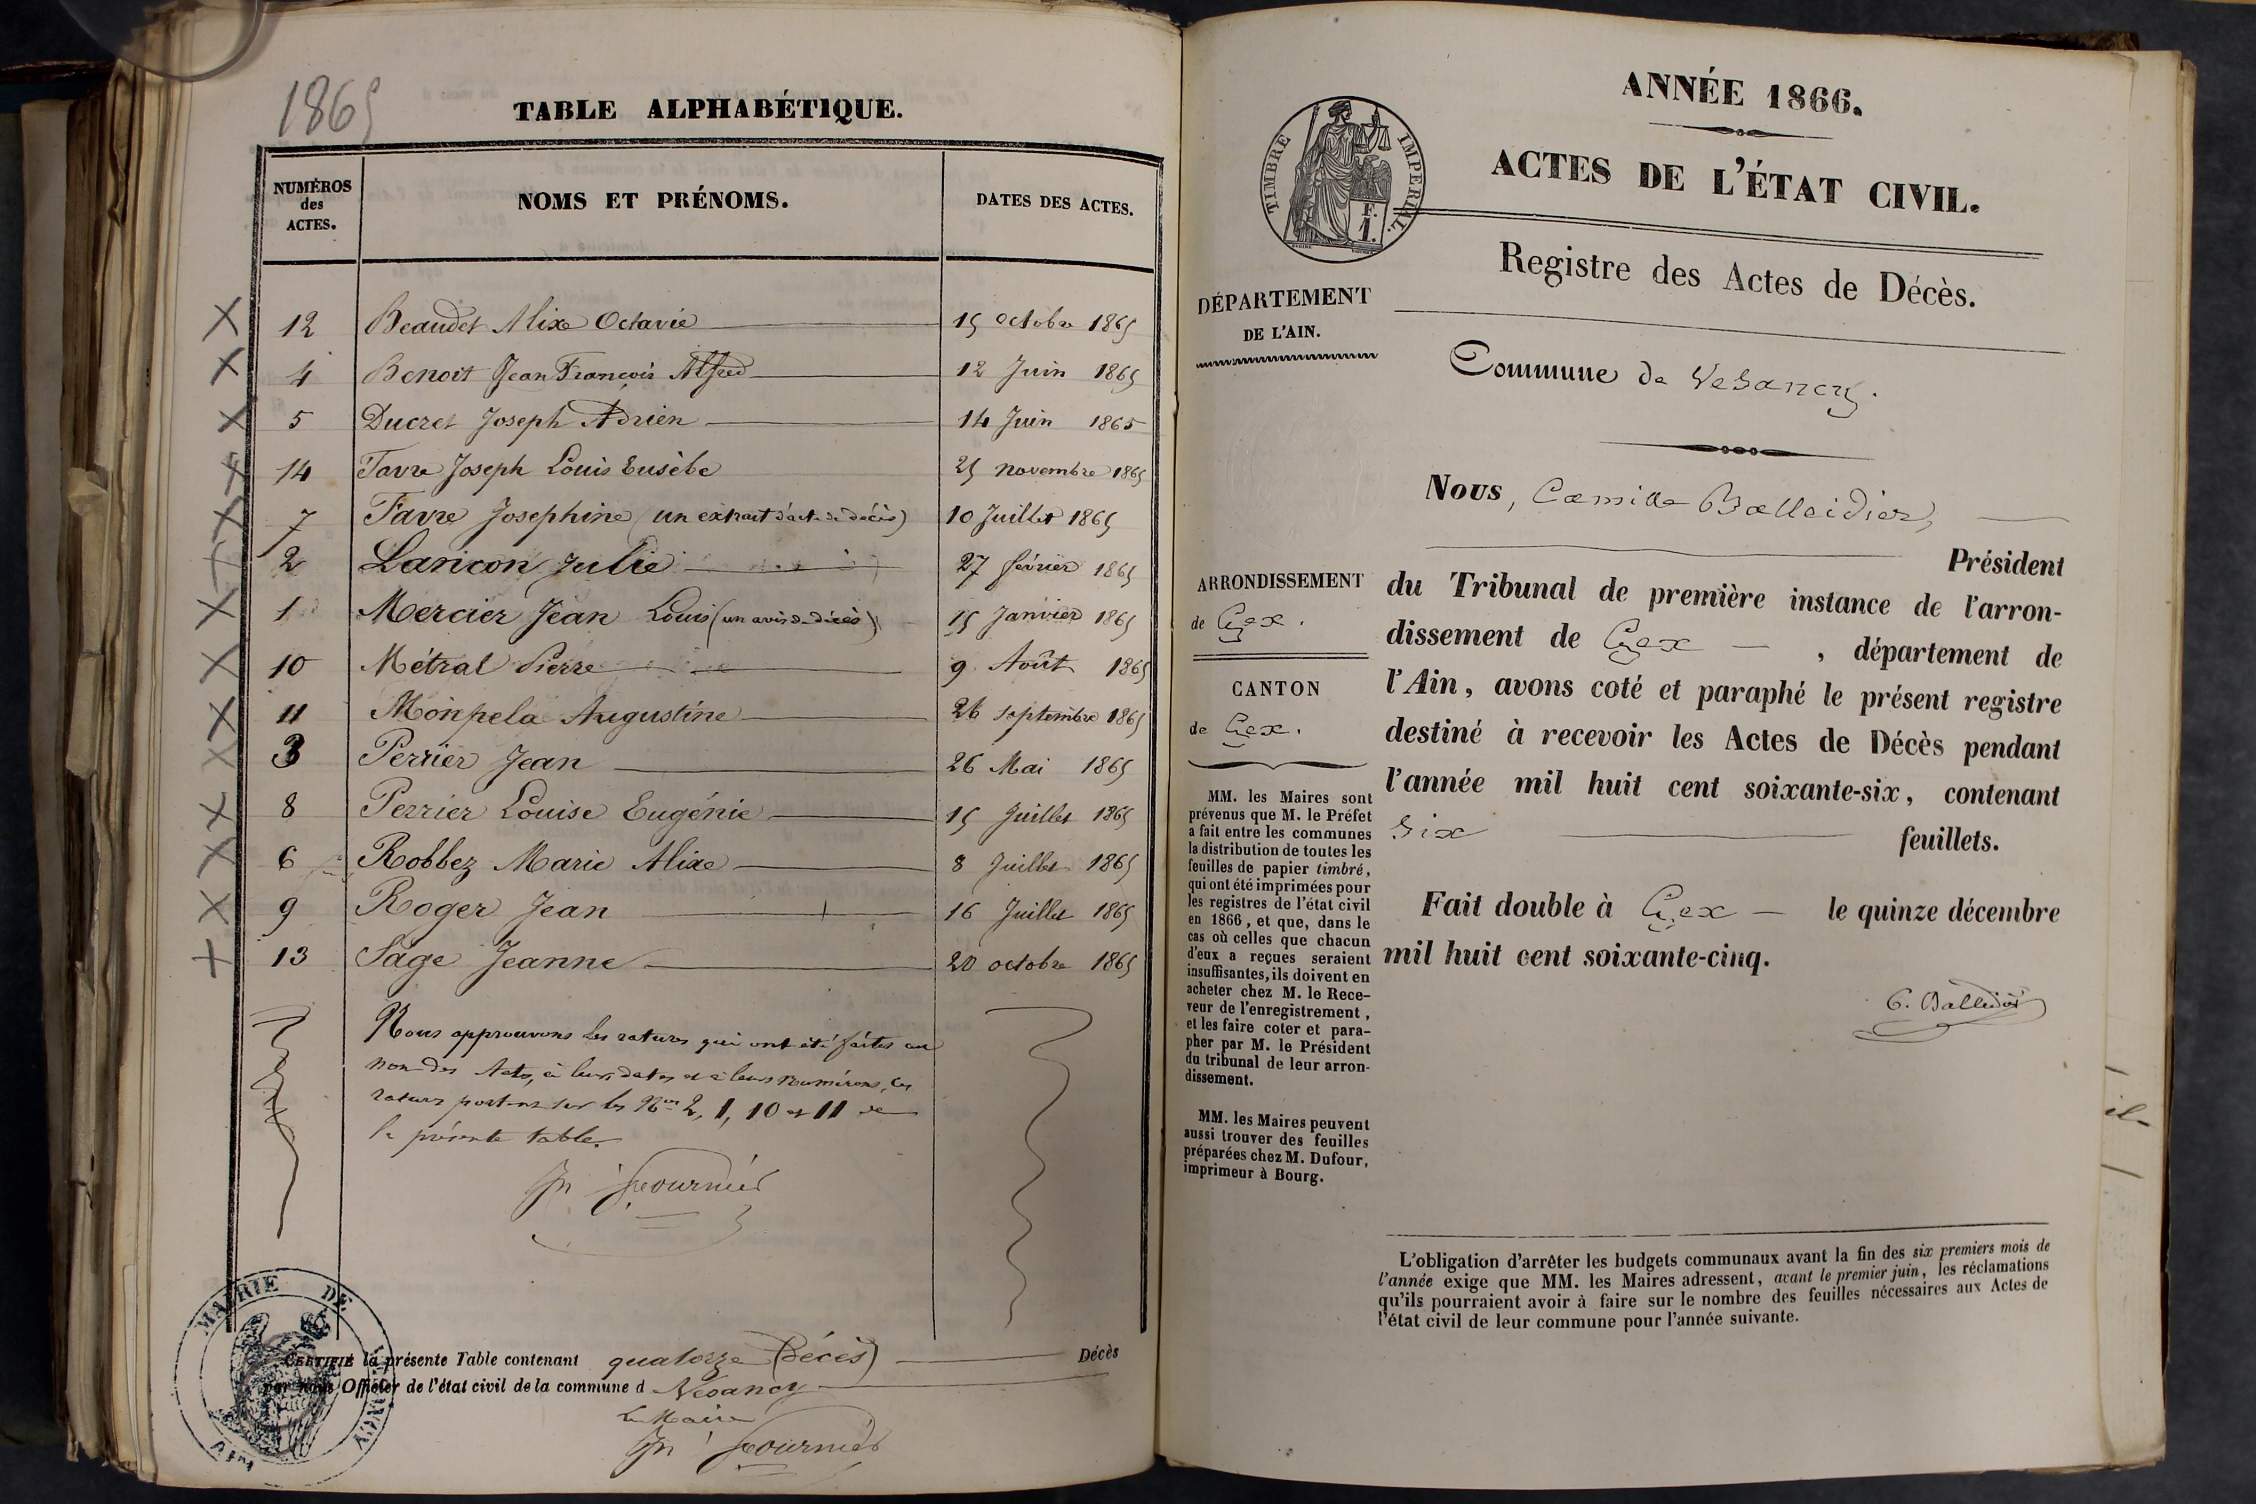 1865
TABLE ALPHABÉTIQUE.
NUMÉROS des ACTES. NOMS ET PRÉNOMS. DATES DES ACTES.
12 Beaudet Alixe Octavie 15 octobre 1865
4 Benoit Jean François Alfred 12 Juin 1865
5 Ducret Joseph Adrien 14 Juin 1865
14 Favre Joseph Louis Eusèbe 25 novembre 1865
7 Favre Josephine (un extrait d'acte de décès) 10 Juillet 1865
2 Lançon Julie 27 février 1865
1 Mercier Jean Louis (un avis de décès) 15 Janvier 1865
10 Métral Pierre 9 Août 1865
11 Monpela Augustine 26 septembre 1865
3 Perrier Jean 26 Mai 1865
8 Perrier Louise Eugénie 15 Juillet 1865
6 Robbez Marie Alixe 8 Juillet 1865
9 Roger Jean 16 Juillet 1865
13 Sage Jeanne 20 octobre 1865
Nous approuvons les ratures qui ont été faites au
nom des Actes, à leurs dates et à leurs numéros, les
ratures portent sur les Nos 2, 1, 10 et 11 de
la présente table.
Fournier
MAIRIE DE VESANCY
AIN
CERTIFIÉ la présente Table contenant quatorze (Décès) Décès
par nous Officier de l'état civil de la commune d Vesancy
Le Maire
Fournier
ANNÉE 1866.
TIMBRE IMPERIAL.
F.
1.
ACTES DE L'ÉTAT CIVIL.
Registre des Actes de Décès.
DÉPARTEMENT
DE L'AIN.
Commune de Vesancy.
Nous, Camille Balleidier,
Président
du Tribunal de première instance de l'arron-
dissement de Gex, département de
l'Ain, avons coté et paraphé le présent registre
destiné à recevoir les Actes de Décès pendant
l'année mil huit cent soixante-six, contenant
six feuillets.
Fait double à Gex le quinze décembre
mil huit cent soixante-cinq.
C. Balleidier
ARRONDISSEMENT
de Gex.
CANTON
de Gex.
MM. les Maires sont
prévenus que M. le Préfet
a fait entre les communes
la distribution de toutes les
feuilles de papier timbré,
qui ont été imprimées pour
les registres de l'état civil
en 1866, et que, dans le
cas où celles que chacun
d'eux a reçues seraient
insuffisantes, ils doivent en
acheter chez M. le Rece-
veur de l'enregistrement,
et les faire coter et para-
pher par M. le Président
du tribunal de leur arron-
dissement.
MM. les Maires peuvent
aussi trouver des feuilles
préparées chez M. Dufour,
imprimeur à Bourg.
L'obligation d'arrêter les budgets communaux avant la fin des six premiers mois de
l'année exige que MM. les Maires adressent, avant le premier juin, les réclamations
qu'ils pourraient avoir à faire sur le nombre des feuilles nécessaires aux Actes de
l'état civil de leur commune pour l'année suivante.